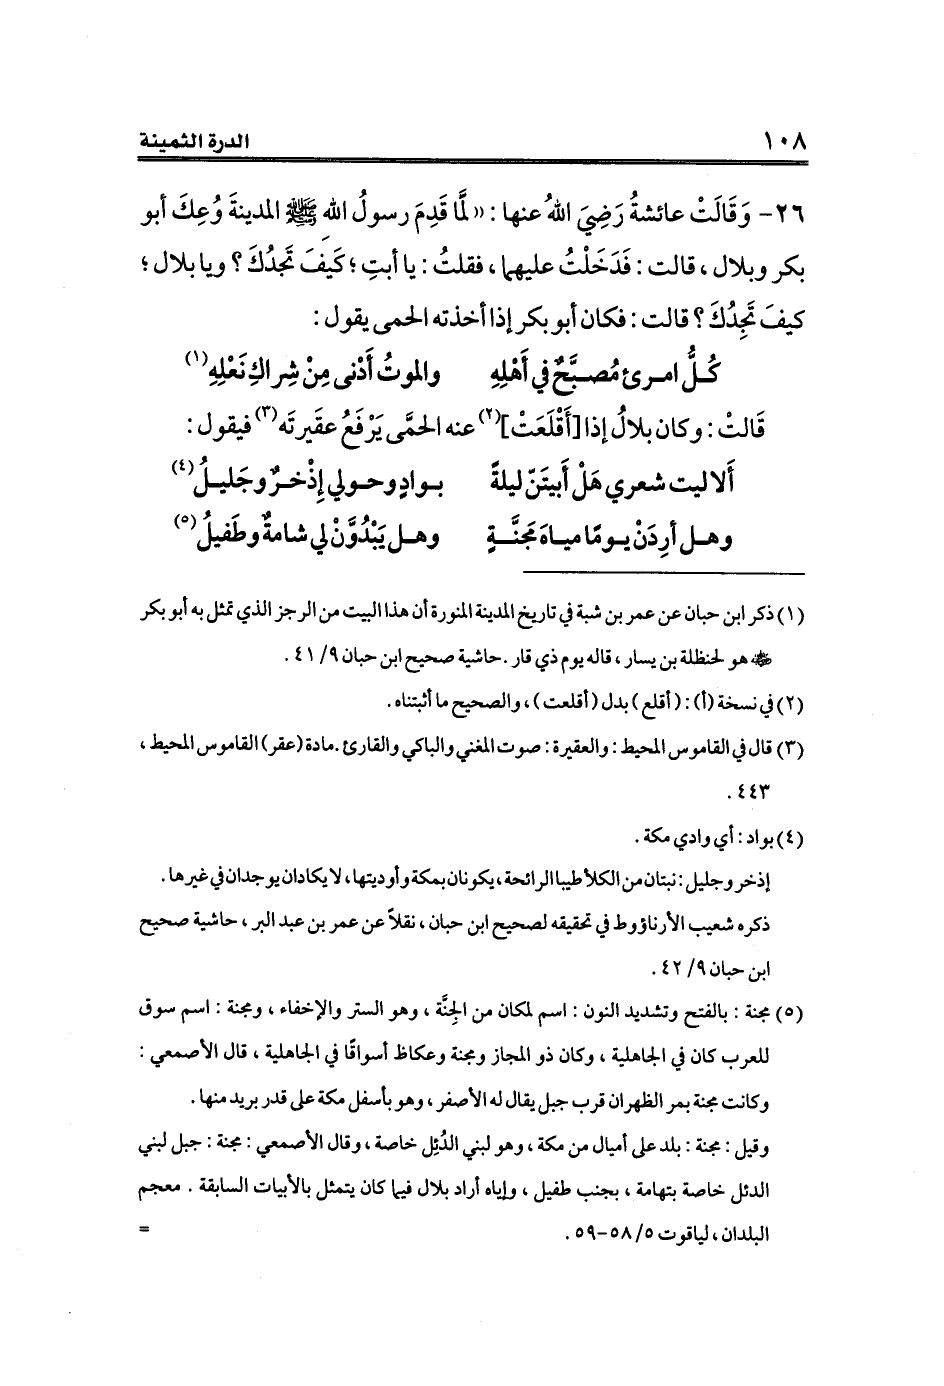 ١٠٨ الدرة الثمينة
٢٦- وَقَالَتْ عائشةُ رَضِيَ اللهُ عنها : «لَمَّا قَدِمَ رسولُ الله ﷺ المدينةَ وُعِكَ أبو
بكر وبلال ، قالت : فَدَخَلْتُ عليهما ، فقلتُ : يا أبتِ ؛ كَيفَ تَجِدُكَ ؟ ويا بلال ؛
كيفَ تَجِدُكَ ؟ قالت : فكان أبو بكر إذا أخذته الحمى يقول :
كُلُّ امرئ مُصبَّحٌ في أَهْلِهِ والموتُ أدْنى مِنْ شِراكِ نَعْلِهِ (١)
قَالتْ : وكان بلالُ إذا [أَقْلَعَتْ] (٢) عنه الحمَّى يَرْفَعُ عقيرتَه (٣) فيقول :
أَلا ليت شعري هَلْ أَبيتَنّ ليلةً بوادٍ وحولي إذْخرٌ وجَليلُ (٤)
وهل أرِدَنْ يومًا مياهَ مَجَنَّةٍ وهل يَبْدُوَّنْ لي شامةٌ وطَفيلُ (٥)
(١) ذكر ابن حبان عن عمر بن شبة في تاريخ المدينة المنورة أن هذا البيت من الرجز الذي تمثل به أبو بكر
ﷺ هو لحنظلة بن يسار ، قاله يوم ذي قار . حاشية صحيح ابن حبان ٩/ ٤١ .
(٢) في نسخة (أ) : (أقلع) بدل (أقلعت) ، والصحيح ما أثبتناه .
(٣) قال في القاموس المحيط : والعقيرة : صوت المغني والباكي والقارئ . مادة (عقر) القاموس المحيط ،
٤٤٣ .
(٤) بواد : أي وادي مكة .
إذخر وجليل : نبتان من الكلأ طيبا الرائحة ، يكونان بمكة وأوديتها ، لا يكادان يوجدان في غيرها .
ذكره شعيب الأرناؤوط في تحقيقه لصحيح ابن حبان ، نقلاً عن عمر بن عبد البر ، حاشية صحيح
ابن حبان ٩/ ٤٢ .
(٥) مجنة : بالفتح وتشديد النون : اسم لمكان من الجِنَّة ، وهو الستر والإخفاء ، ومجنة : اسم سوق
للعرب كان في الجاهلية ، وكان ذو المجاز ومجنة وعكاظ أسواقًا في الجاهلية ، قال الأصمعي :
وكانت مجنة بمر الظهران قرب جبل يقال له الأصفر ، وهو بأسفل مكة على قدر بريد منها .
وقيل : مجنة : بلد على أميال من مكة ، وهو لبني الدُئِل خاصة ، وقال الأصمعي : مجنة : جبل لبني
الدئل خاصة بتهامة ، بجنب طفيل ، وإياه أراد بلال فيما كان يتمثل بالأبيات السابقة . معجم
البلدان ، لياقوت ٥/ ٥٨-٥٩ . =